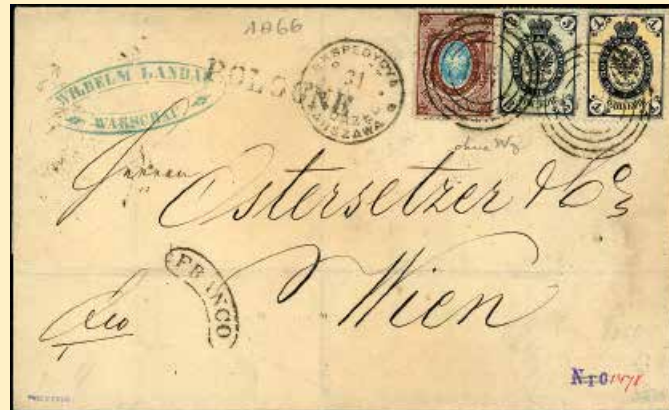 1866
WILHELM LANDAU
WARSCHAU
POLOGNE
EKSPEDYCYA
31
WARSZAWA
3
3
1
1
ohne Wz
Herren
Ostersetzer & Co
FRANCO
Wien
N10